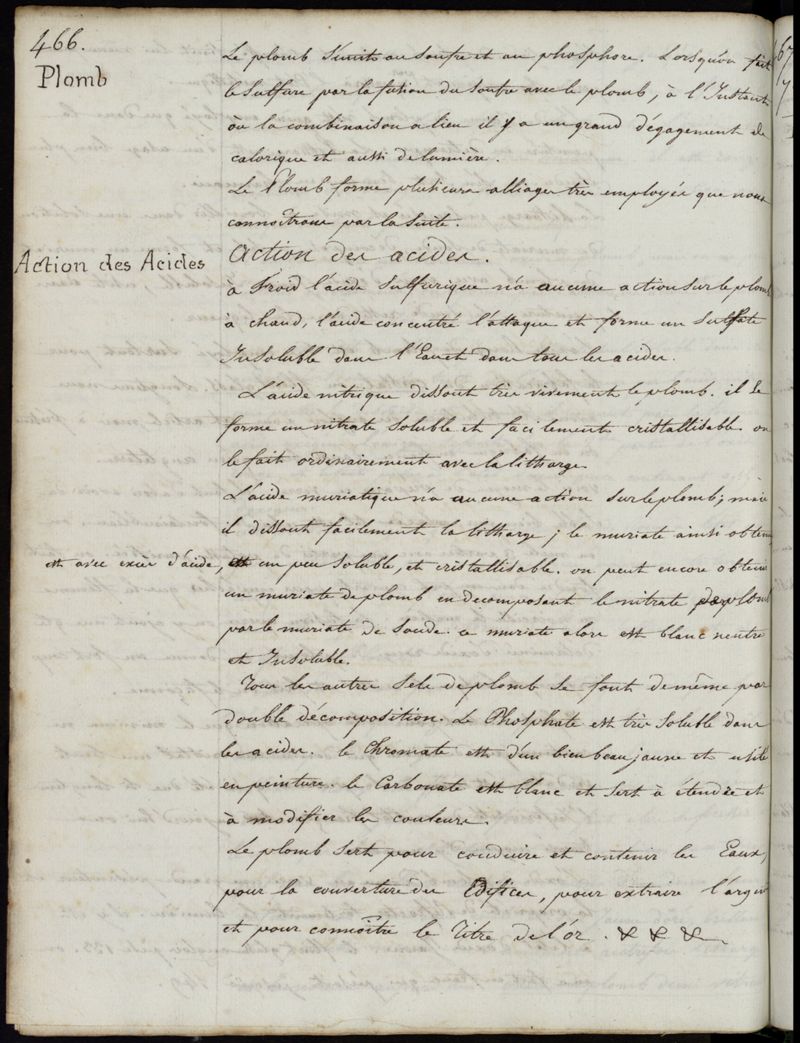 466.
Plomb
Le plomb s'unit au soufre et au phosphore. Lorsqu'on fait
le sulfure par la fusion du soufre avec le plomb, à l'Instant
où la combinaison a lieu il y a un grand dégagement de
calorique et aussi de lumière.
Le Plomb forme plusieurs alliages très employés que nous
connoîtrons par la suite.
Action des Acides
Action des acides.
à Froid l'acide sulfurique n'a aucune action sur le plomb
à chaud, l'acide concentré l'attaque et forme un sulfate
Insoluble dans l'Eau et dans tous les acides.
L'acide nitrique dissout très vivement le plomb. il se
forme un nitrate soluble et facilement cristallisable. on
le fait ordinairement avec la litharge.
L'acide muriatique n'a aucune action sur le plomb; mais
il dissout facilement la litharge; le muriate ainsi obtenu
est avec excès d'acide, est un peu soluble, et cristallisable. on peut encore obtenir
un muriate de plomb en decomposant le nitrate de plomb
par le muriate de soude. ce muriate alors est blanc neutre
et Insoluble.
Tous les autres sels de plomb se font de même par
double décomposition. Le Phosphate est très soluble dans
les acides. le Chromate est d'un bien beau jaune et utile
en peinture. le Carbonate est blanc et sert à étendre et
à modifier les couleurs.
Le plomb sert pour conduire et contenir les Eaux,
pour la couverture des Edifices, pour extraire l'argent
et pour connoître le Titre de l'or.